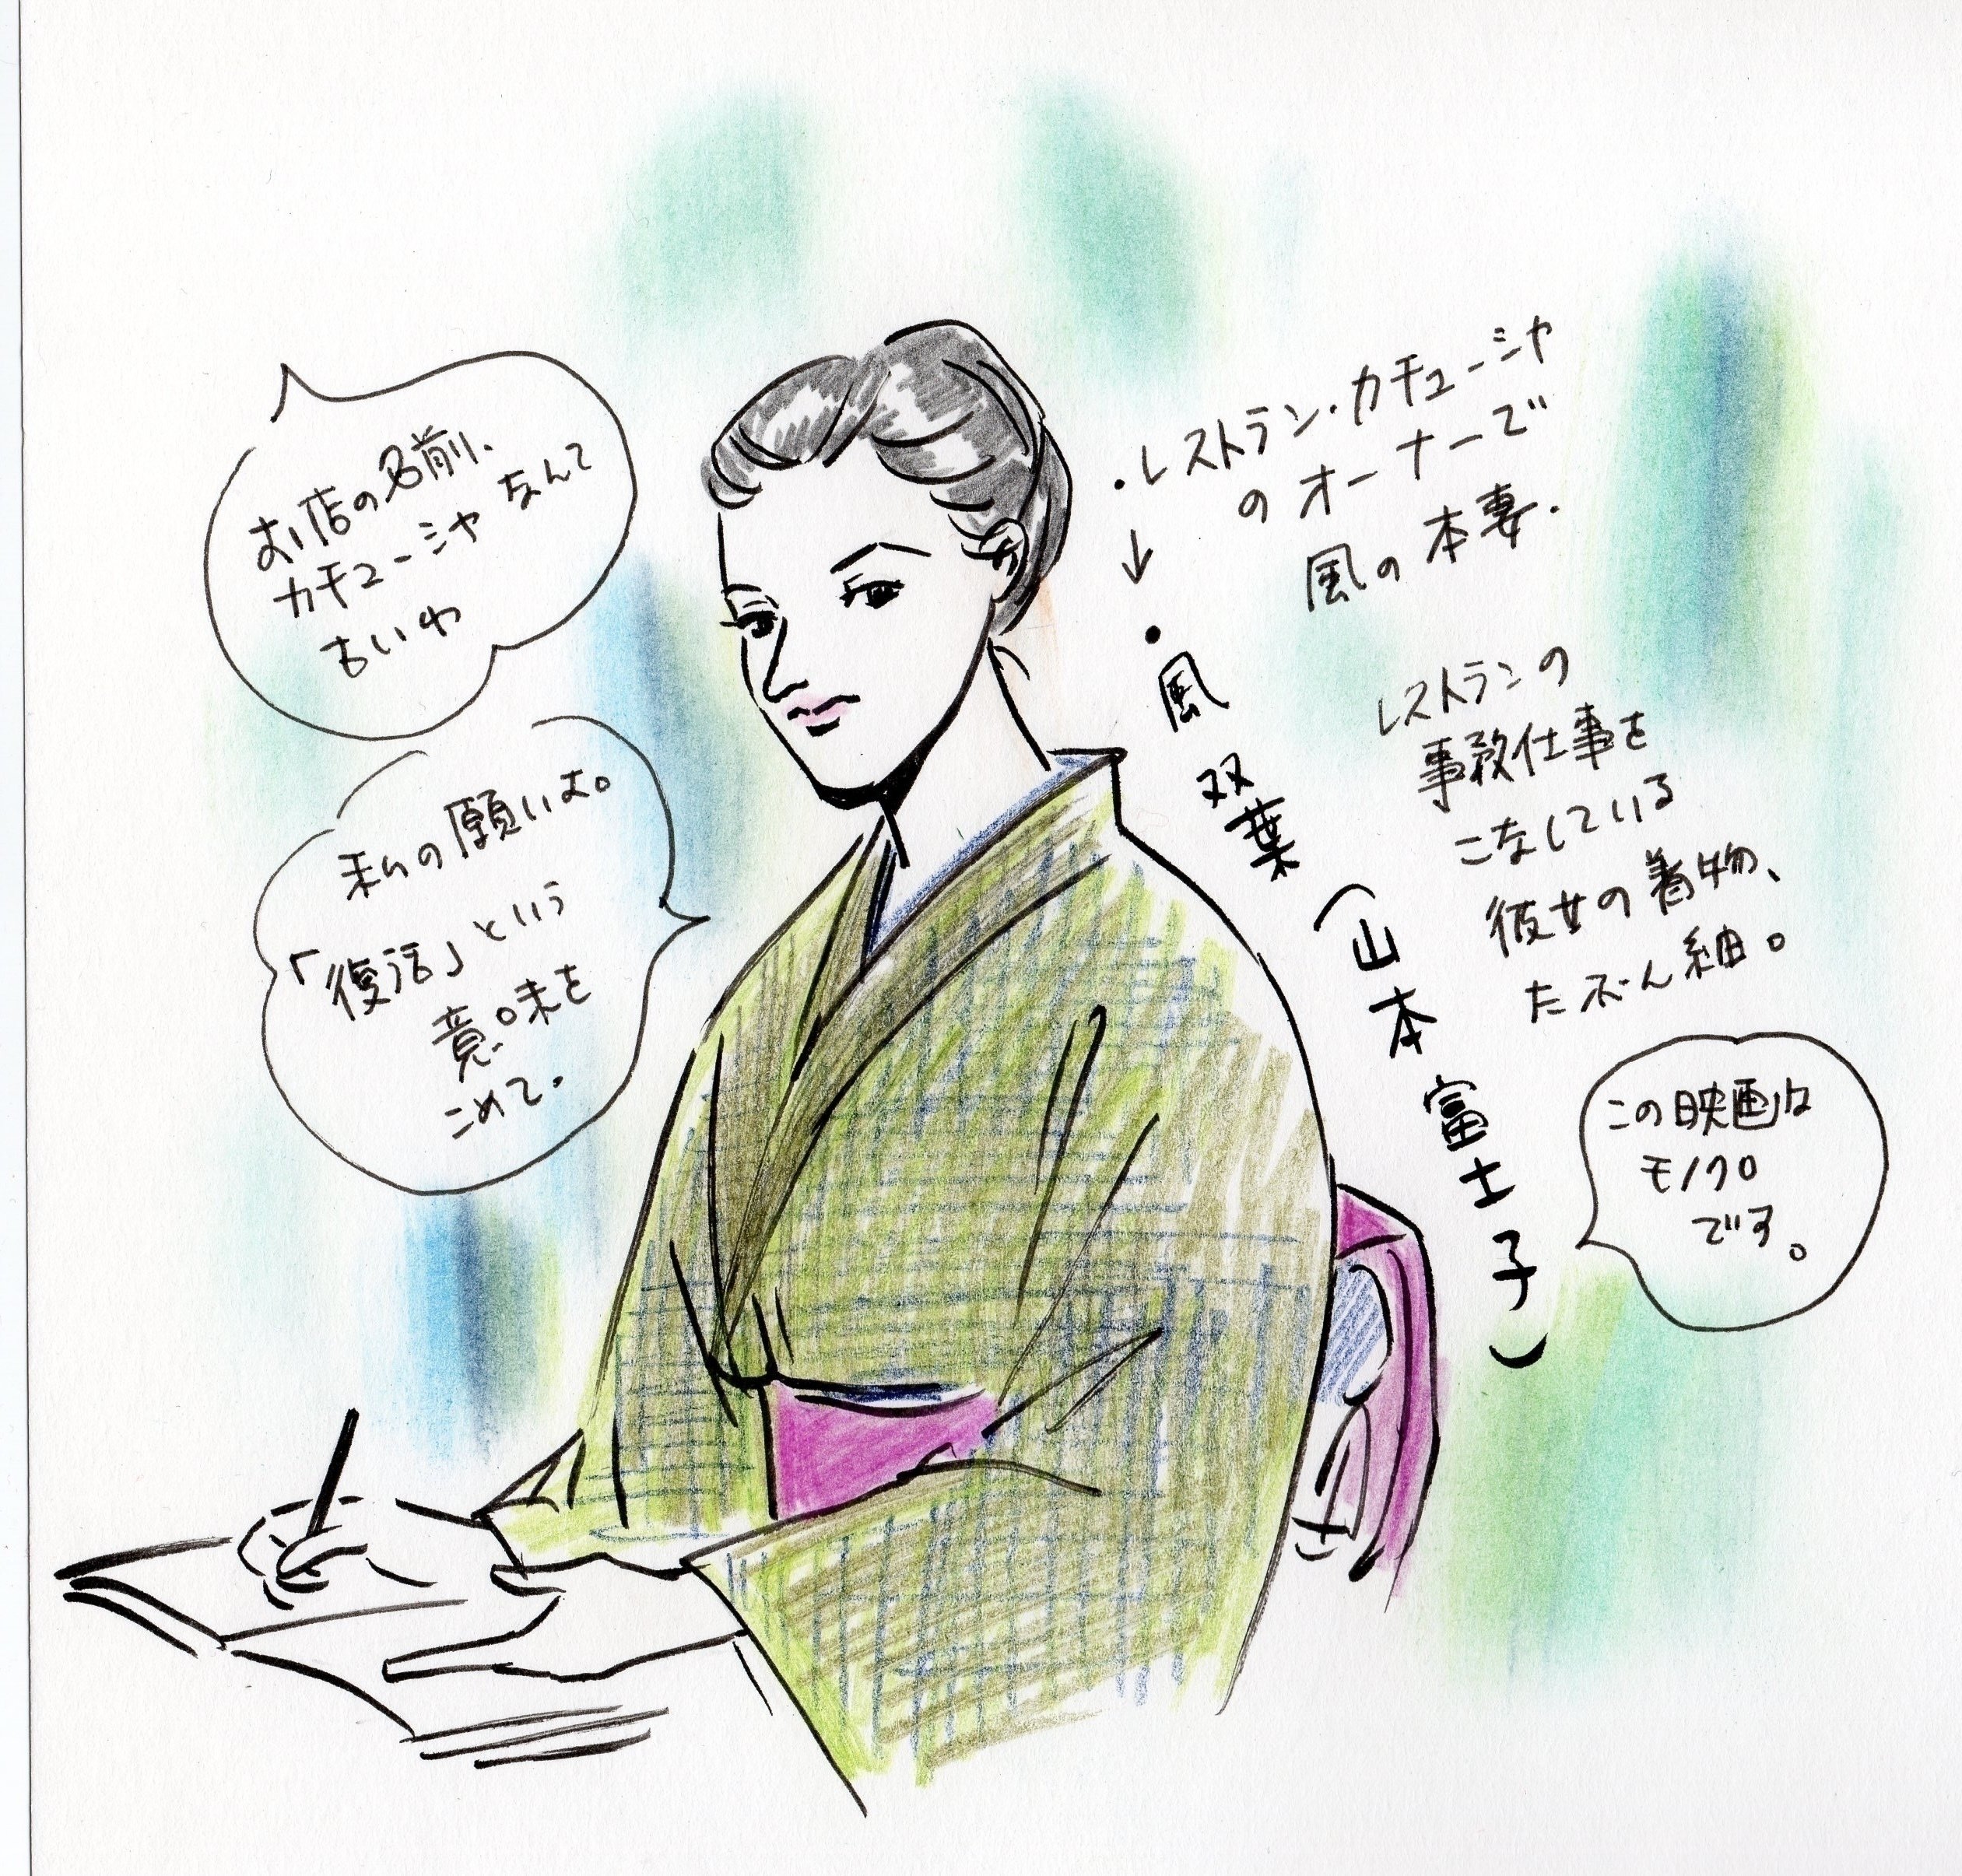 お店の名前、
カチューシャなんて
古いわ
私の願いよ。
「復活」という
意味を
こめて.
・レストラン・カチューシャ
のオーナーで
風の本妻.
↓
・風 双葉 (山本 富士子)
レストランの
事務仕事を
こなしている
彼女の着物、
たぶん紬。
この映画は
モノクロ
です。